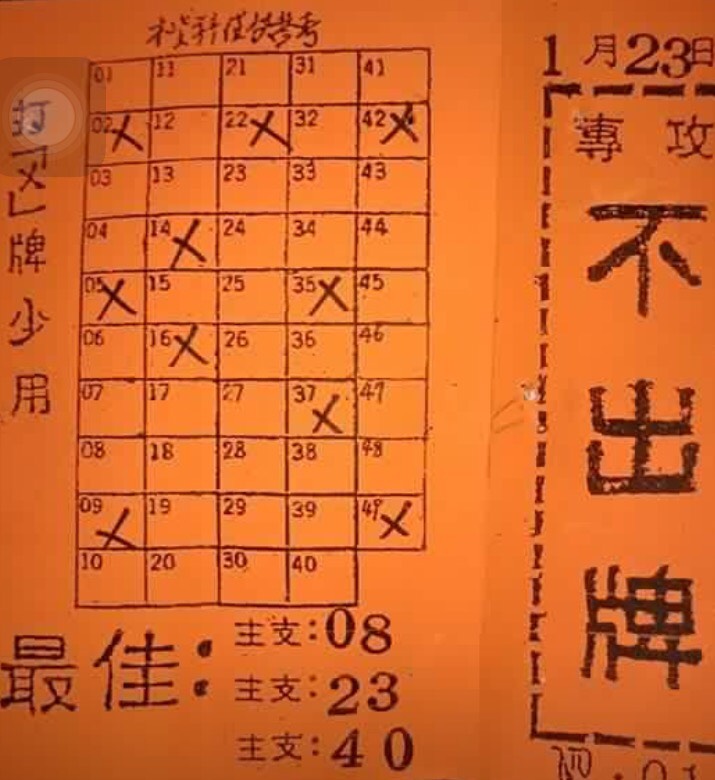 1月23日
專攻
不出牌
打「X」牌少用
01 11 21 31 41
02 X 12 22 X 32 42 X
03 13 23 33 43
04 14 X 24 34 44
05 X 15 25 35 X 45
06 16 X 26 36 46
07 17 27 37 X 47
08 18 28 38 48
09 X 19 29 39 49 X
10 20 30 40
最佳：
主支：08
主支：23
主支：40